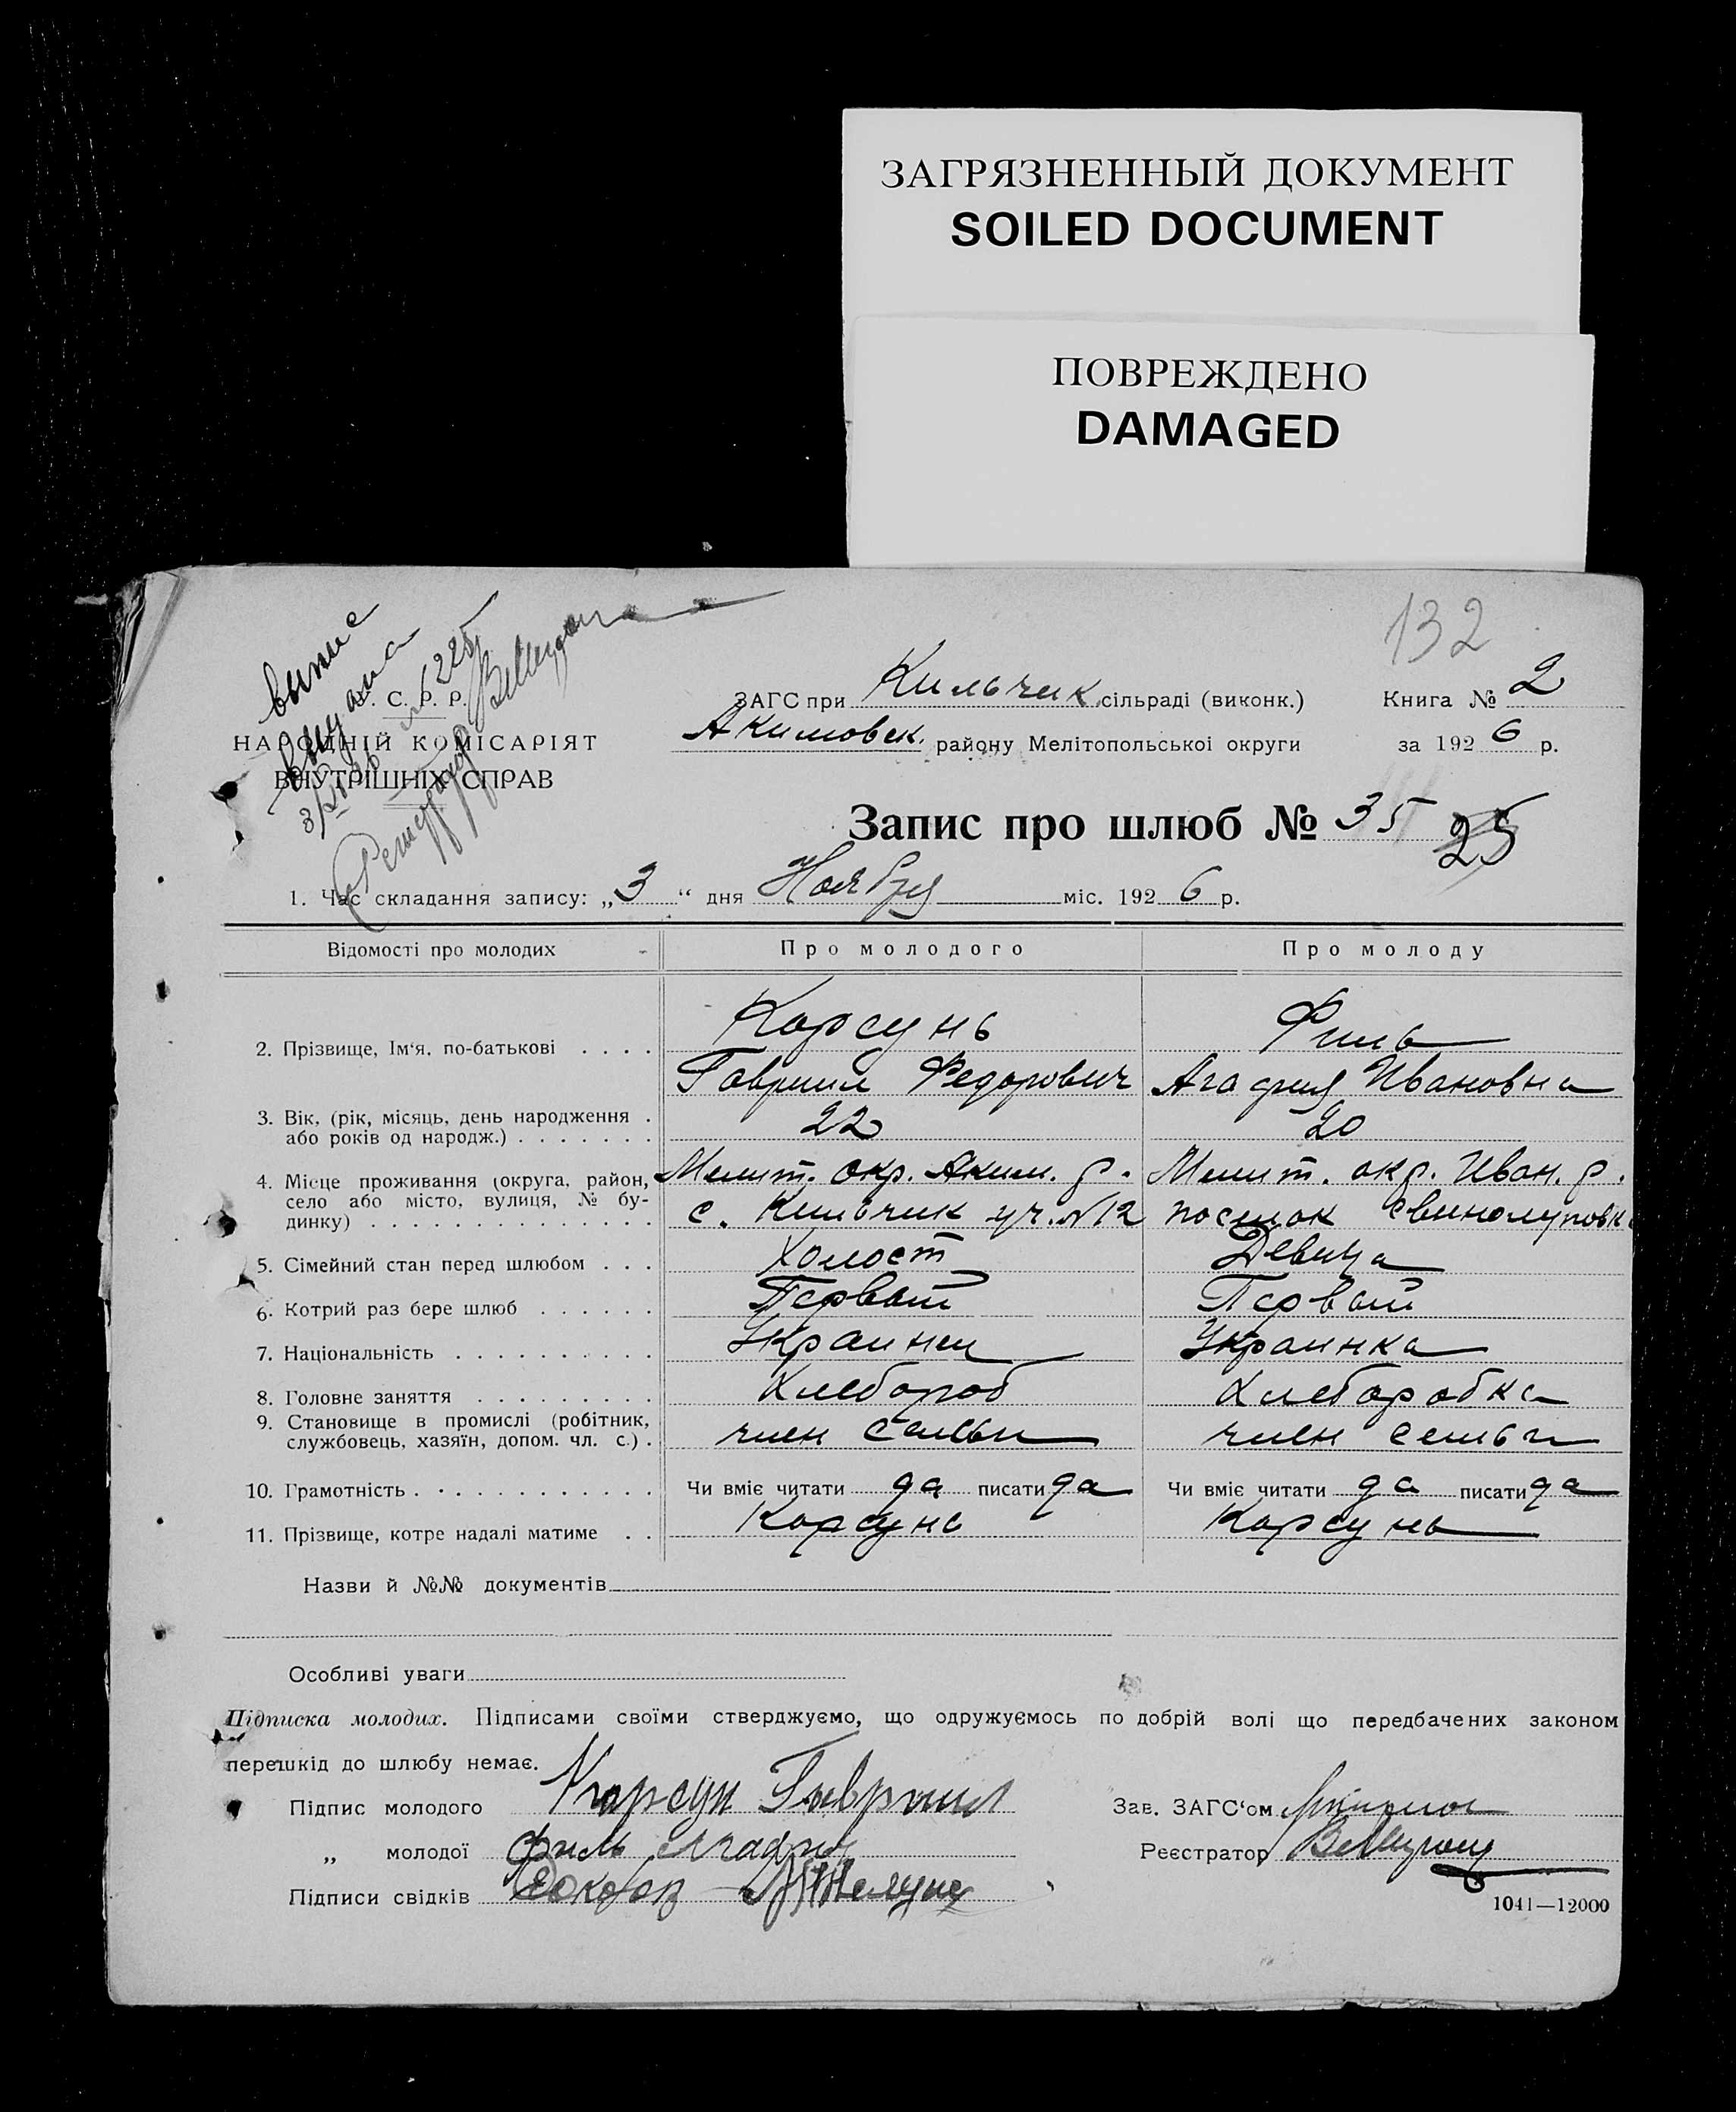 ЗАГРЯЗНЕННЫЙ ДОКУМЕНТ
SOILED DOCUMENT
ПОВРЕЖДЕНО
DAMAGED
132
С. Р. Р.
НАРОДНІЙ КОМІСАРІЯТ
ВНУТРІШНІХ СПРАВ
ЗАГС при Кильчик сільраді (виконк.) Книга № 2
Акимовск. району Мелітопольської округи за 1926 р.
Запис про шлюб № 35 25
1. Час складання запису: „3“ дня Ноября міс. 1926 р.
Відомості про молодих Про молодого Про молоду
Корсунь Филь
2. Прізвище, Ім‘я, по-батькові . . . .
Гавриил Федорович Агафия Ивановна
3. Вік, (рік, місяць, день народження .
або років од народж.) . . . . . . . 22 20
4. Місце проживання (округа, район, Мелит. окр. Аким. р. Мелит. окр. Иван. р.
село або місто, вулиця, № бу-
динку) . . . . . . . . . . . . . . . с. Кильчик уч. №12 поселок
5. Сімейний стан перед шлюбом . . . Холост Девица
6. Котрий раз бере шлюб . . . . . . Первый Первый
7. Національність . . . . . . . . . . Украинец Украинка
8. Головне заняття . . . . . . . . . Хлебороб Хлеборобка
9. Становище в промислі (робітник,
службовець, хазяїн, допом. чл. с.) . член семьи член семьи
10. Грамотність . . . . . . . . . . . . Чи вміє читати да писати да Чи вміє читати да писати да
11. Прізвище, котре надалі матиме . . Корсунь Корсунь
Назви й №№ документів
Особливі уваги
Підписка молодих. Підписами своїми стверджуємо, що одружуємось по добрій волі що передбачених законом
перешкід до шлюбу немає.
Підпис молодого Корсун Гавриил Зав. ЗАГС‘ом
„ молодої Филь Агафия Реєстратор
Підписи свідків
1041—12000